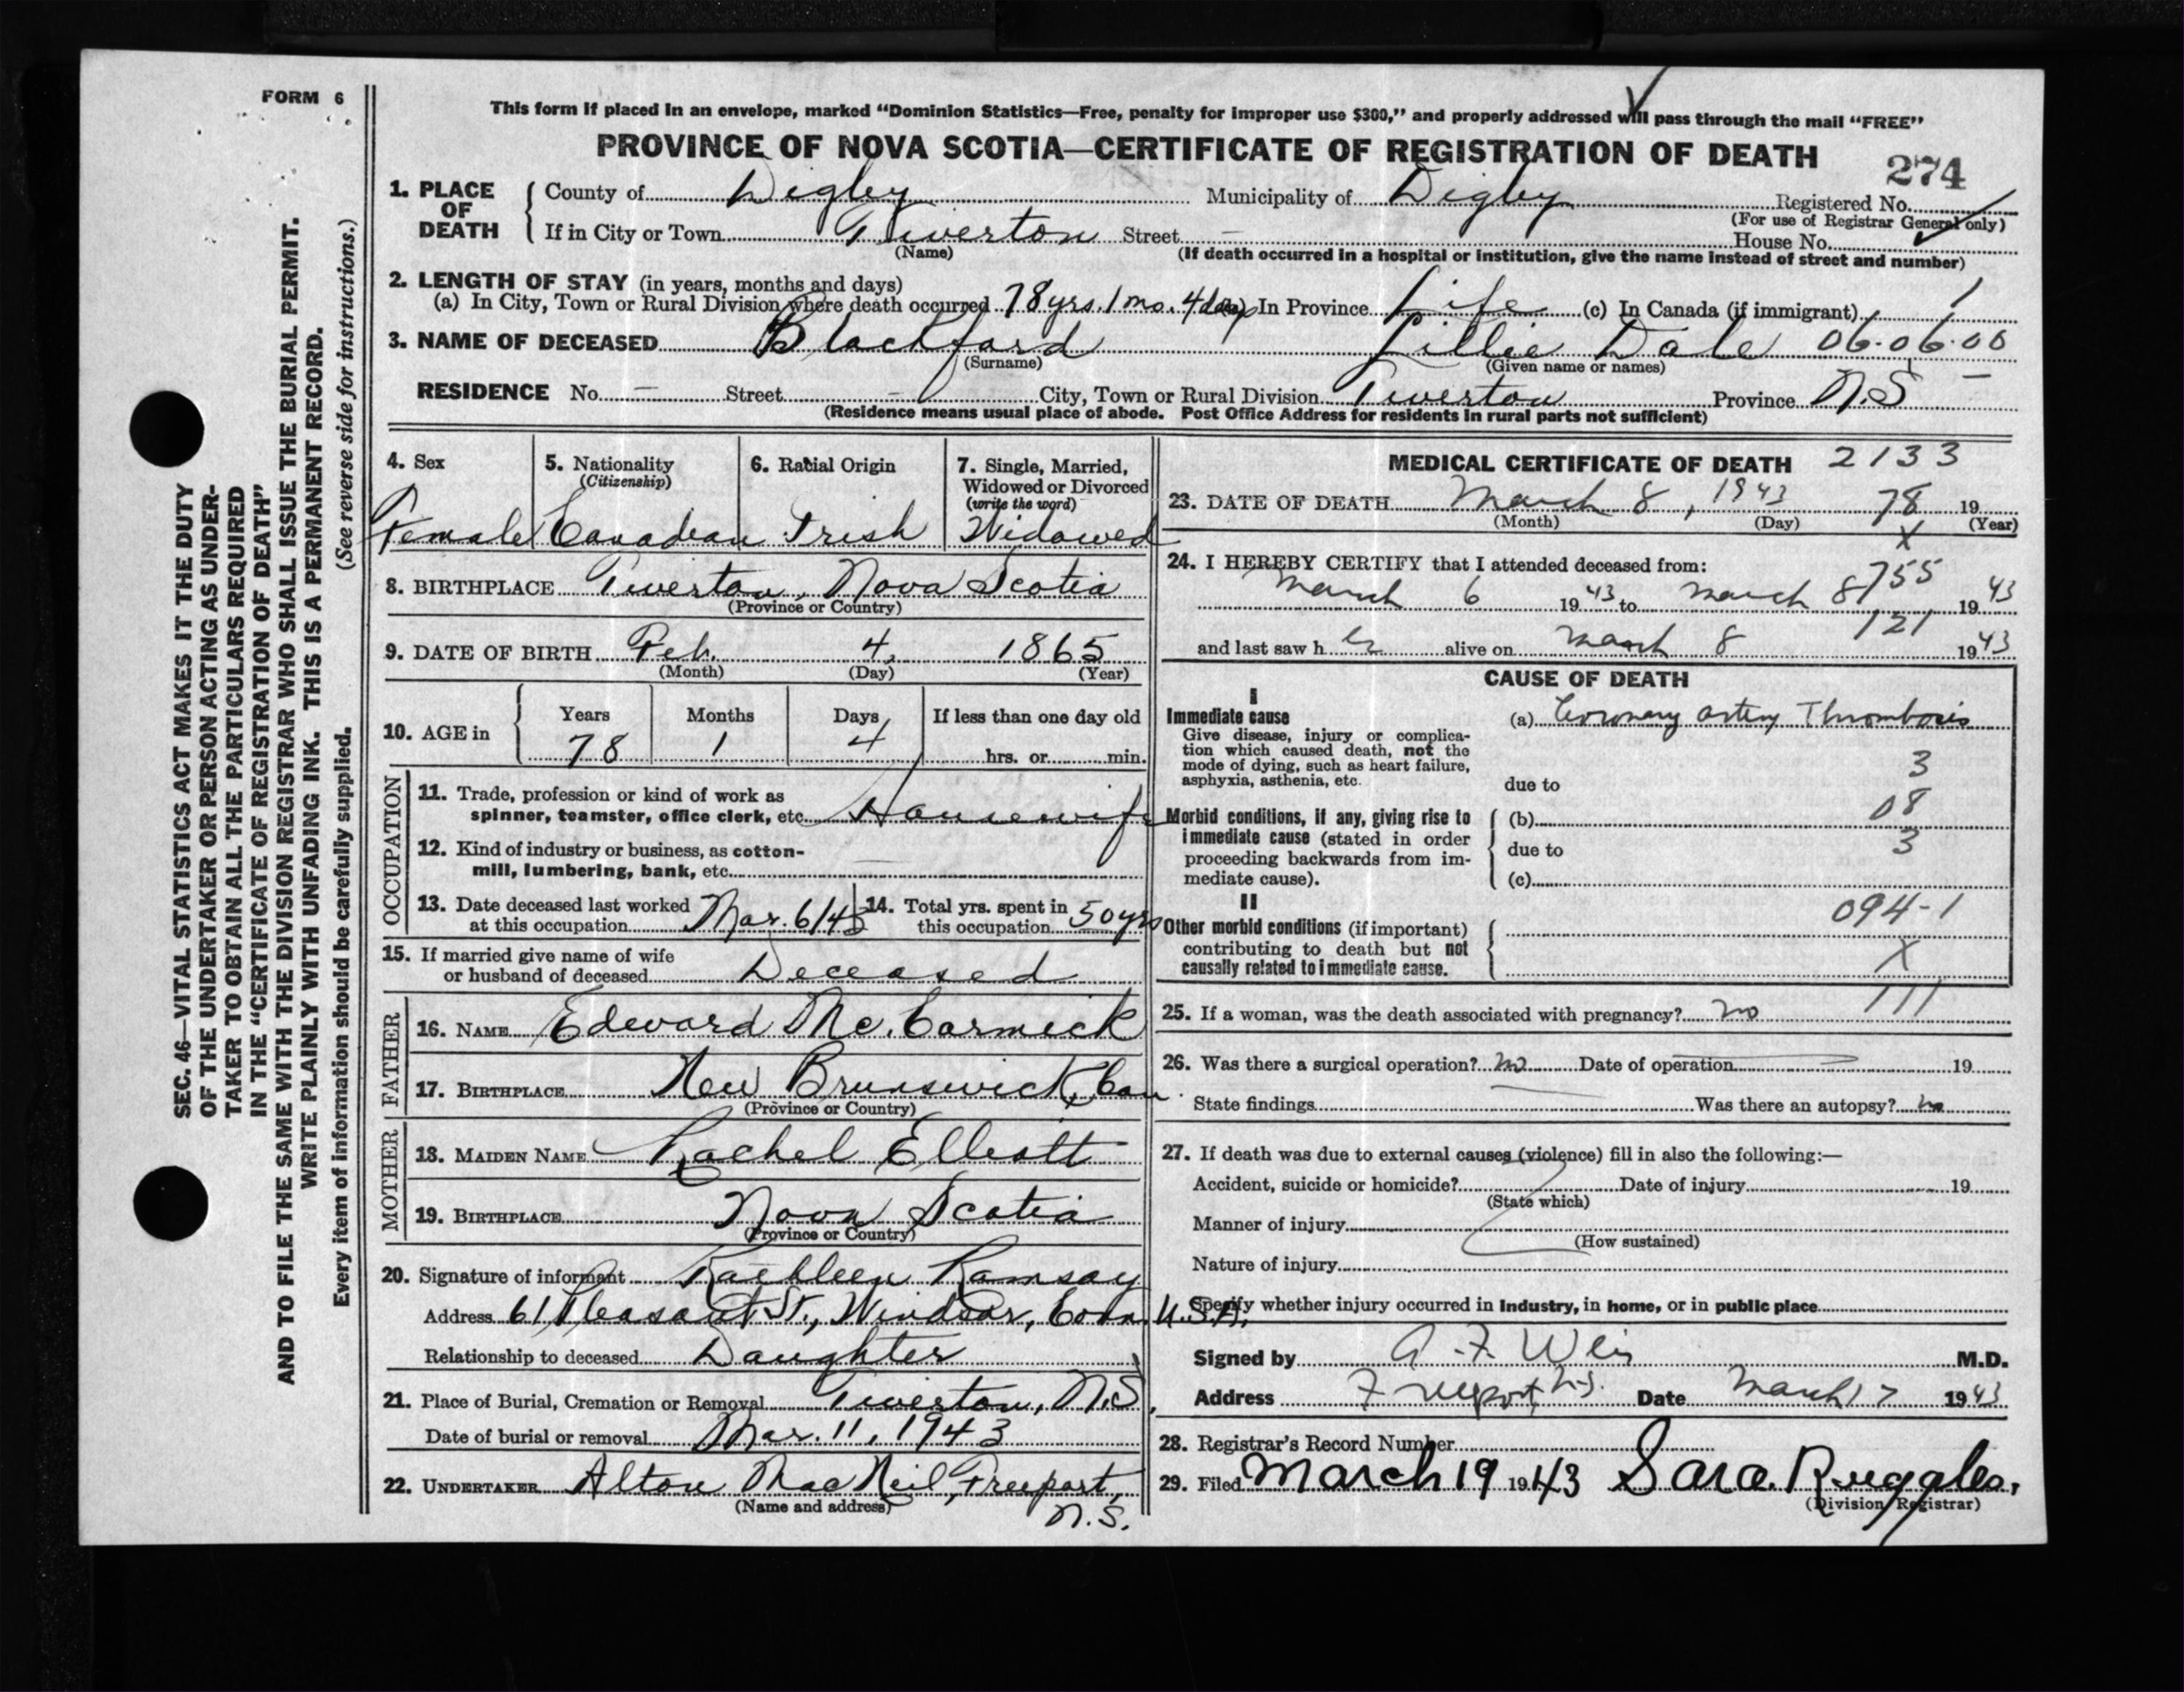 FORM 6
This form if placed in an envelope, marked “Dominion Statistics—Free, penalty for improper use $300,” and properly addressed will pass through the mail “FREE”
PROVINCE OF NOVA SCOTIA—CERTIFICATE OF REGISTRATION OF DEATH
274
1. PLACE OF DEATH
County of Digby Municipality of Digby Registered No.
(For use of Registrar General only)
If in City or Town Tiverton Street — House No.
(Name) (If death occurred in a hospital or institution, give the name instead of street and number)
2. LENGTH OF STAY (in years, months and days)
(a) In City, Town or Rural Division where death occurred 78 yrs. 1 mo. 4 days In Province Life (c) In Canada (if immigrant) 1
3. NAME OF DECEASED Blackford Lillie Dale 06.06.00
(Surname) (Given name or names)
RESIDENCE No. — Street — City, Town or Rural Division Tiverton Province N.S —
(Residence means usual place of abode. Post Office Address for residents in rural parts not sufficient)
4. Sex
Female
5. Nationality
(Citizenship)
Canadian
6. Racial Origin
Irish
7. Single, Married,
Widowed or Divorced
(write the word)
Widowed
8. BIRTHPLACE Tiverton, Nova Scotia
(Province or Country)
9. DATE OF BIRTH Feb. 4, 1865
(Month) (Day) (Year)
10. AGE in
Years Months Days If less than one day old
78 1 4 hrs. or min.
OCCUPATION
11. Trade, profession or kind of work as
spinner, teamster, office clerk, etc. Housewife
12. Kind of industry or business, as cotton-
mill, lumbering, bank, etc. —
13. Date deceased last worked
at this occupation Mar. 6/43
14. Total yrs. spent in
this occupation 50 yrs
15. If married give name of wife
or husband of deceased Deceased
FATHER
16. NAME Edward Mc.Cormick
17. BIRTHPLACE New Brunswick, Can.
(Province or Country)
MOTHER
18. MAIDEN NAME Rachel Elliott
19. BIRTHPLACE Nova Scotia
(Province or Country)
20. Signature of informant Kathleen Ramsay
Address 61 Pleasant St., Windsor, Conn. U.S.A.
Relationship to deceased Daughter
21. Place of Burial, Cremation or Removal Tiverton, N.S.
Date of burial or removal Mar. 11, 1943
22. UNDERTAKER Alton MacNeil, Freeport,
(Name and address) N.S.
MEDICAL CERTIFICATE OF DEATH 2133
23. DATE OF DEATH March 8, 1943 78 19
(Month) (Day) (Year)
X
24. I HEREBY CERTIFY that I attended deceased from:
755
March 6 1943 to March 8 1943
121
and last saw her alive on March 8 1943
CAUSE OF DEATH
I
Immediate cause
Give disease, injury or complica-
tion which caused death, not the
mode of dying, such as heart failure,
asphyxia, asthenia, etc.
(a) Coronary artery Thrombosis
3
due to
Morbid conditions, if any, giving rise to
immediate cause (stated in order
proceeding backwards from im-
mediate cause).
(b) 08
due to 3
(c)
II
Other morbid conditions (if important)
contributing to death but not
causally related to immediate cause.
094-1
X
111
25. If a woman, was the death associated with pregnancy? no
26. Was there a surgical operation? no Date of operation — 19
State findings Was there an autopsy? no
27. If death was due to external causes (violence) fill in also the following:—
Accident, suicide or homicide? Date of injury 19
(State which)
Manner of injury
(How sustained)
Nature of injury
Specify whether injury occurred in industry, in home, or in public place
Signed by A. F. Weir M.D.
Address Freeport, N.S. Date March 17 1943
28. Registrar's Record Number
29. Filed March 19 1943 Sara. Ruggles,
(Division Registrar)
SEC. 46—VITAL STATISTICS ACT MAKES IT THE DUTY
OF THE UNDERTAKER OR PERSON ACTING AS UNDER-
TAKER TO OBTAIN ALL THE PARTICULARS REQUIRED
IN THE “CERTIFICATE OF REGISTRATION OF DEATH”
AND TO FILE THE SAME WITH THE DIVISION REGISTRAR WHO SHALL ISSUE THE BURIAL PERMIT.
WRITE PLAINLY WITH UNFADING INK. THIS IS A PERMANENT RECORD.
Every item of information should be carefully supplied. (See reverse side for instructions.)